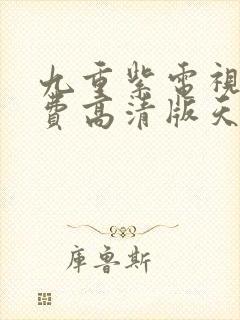 九重紫電視
費高清版天
庫魯斯